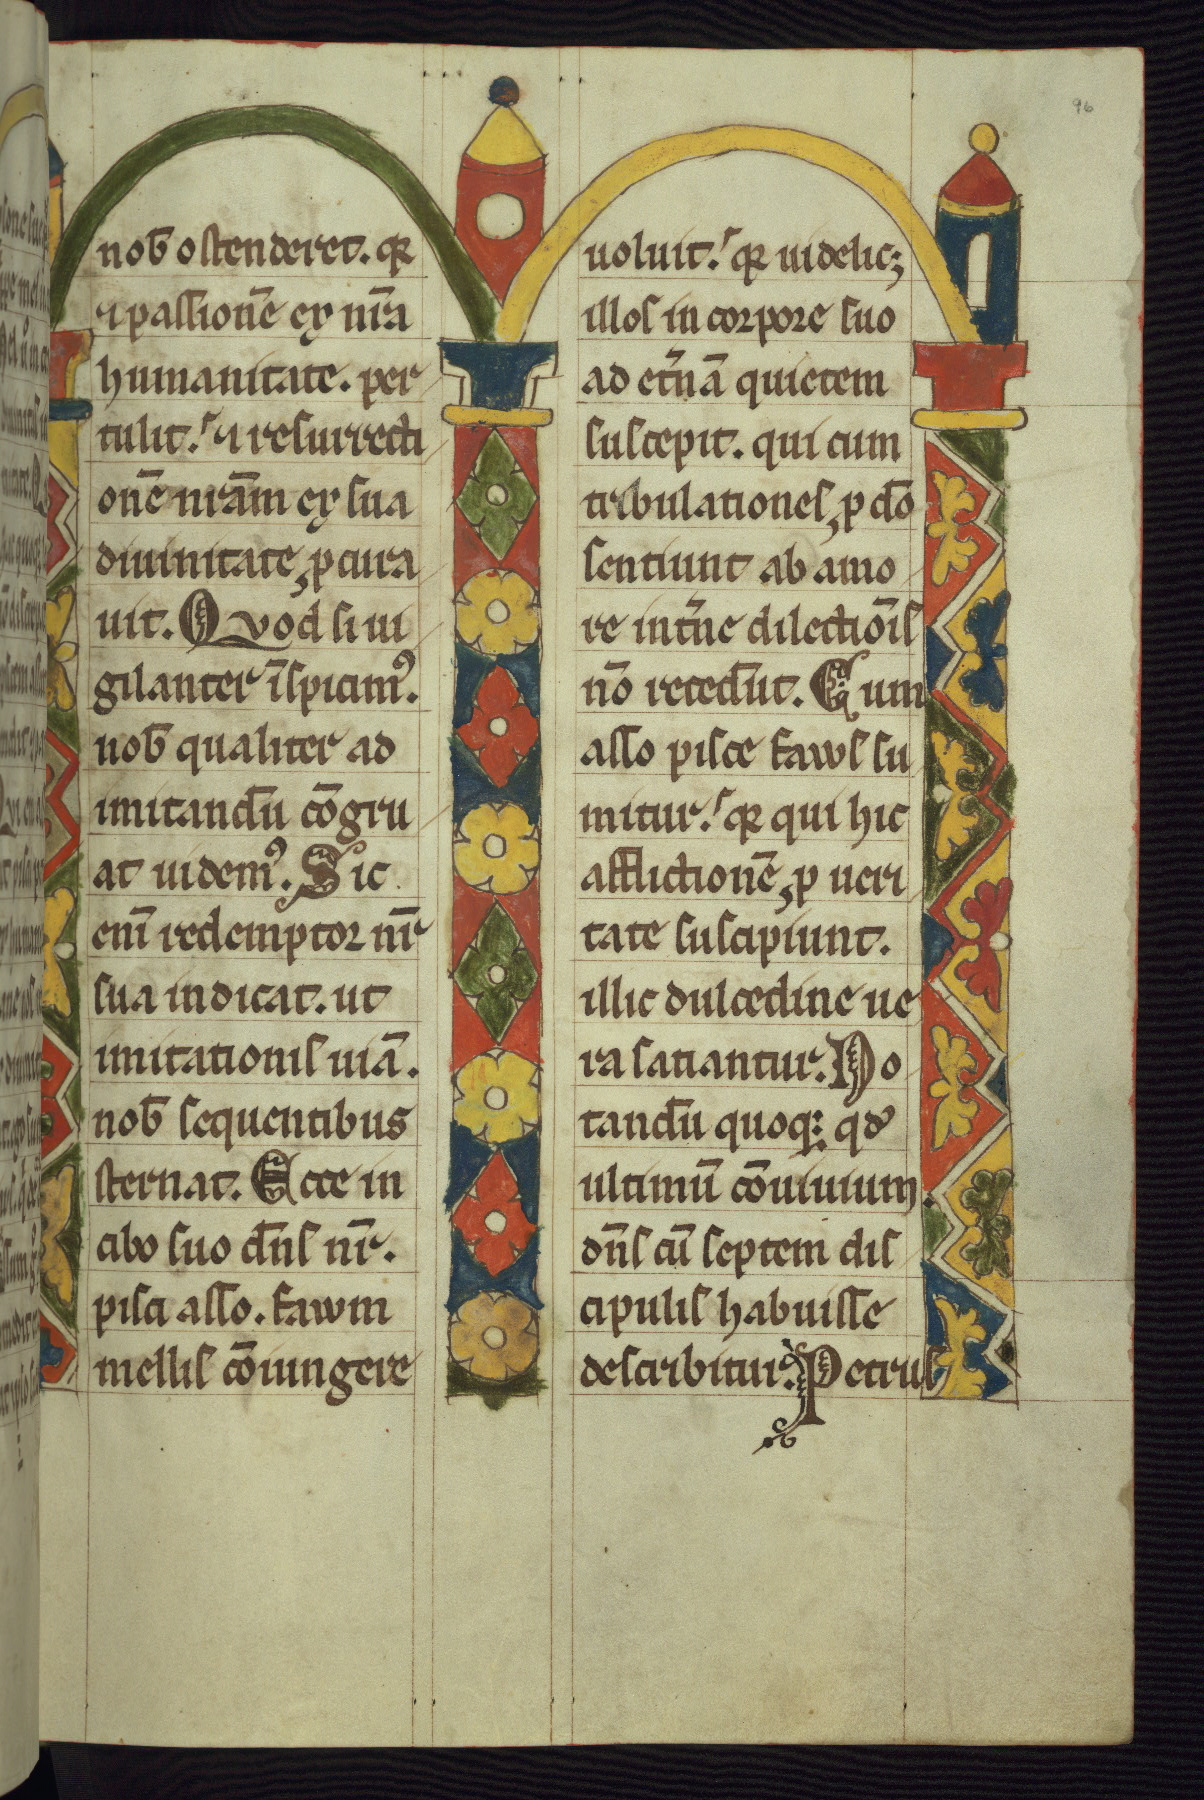 96
nob̄ ostenderet. qꝛ
⁊ passionē ex nr̄a
humanitate. per
tulit. ⁊ resurrecti
onē nrām ex sua
diuinitate, p cura
uit. Quod si ui
gilanter īspicim᾿.
nob̄ qualiter ad
imitandū cōgru
at uidem᾿. Sic
enī redemptor nr̄
sua indicat. ut
imitationis uiā.
nob̄ sequentibus
sternat. Ecce in
cibo suo dn̄s nr̄.
pisci asso. fawm
mellis cōiungere
uoluit. qꝛ uidelic;
illos in corpore suo
ad et̄nā quietem
suscepit. qui cum
tribulationes, p dō
sentiunt ab amo
re int̄ne dilectiōis
nō recedūt. Cum
asso pisce faws su
mitur. qꝛ qui hic
afflictionē, p ueri
tate suscipiunt.
illic dulcedine ue
ra satiantur. No
tandū quoq; qd᾿
ultimū cōuiuium.
dn̄s cū septem dis
cipulis habuisse
describitur. Petrus